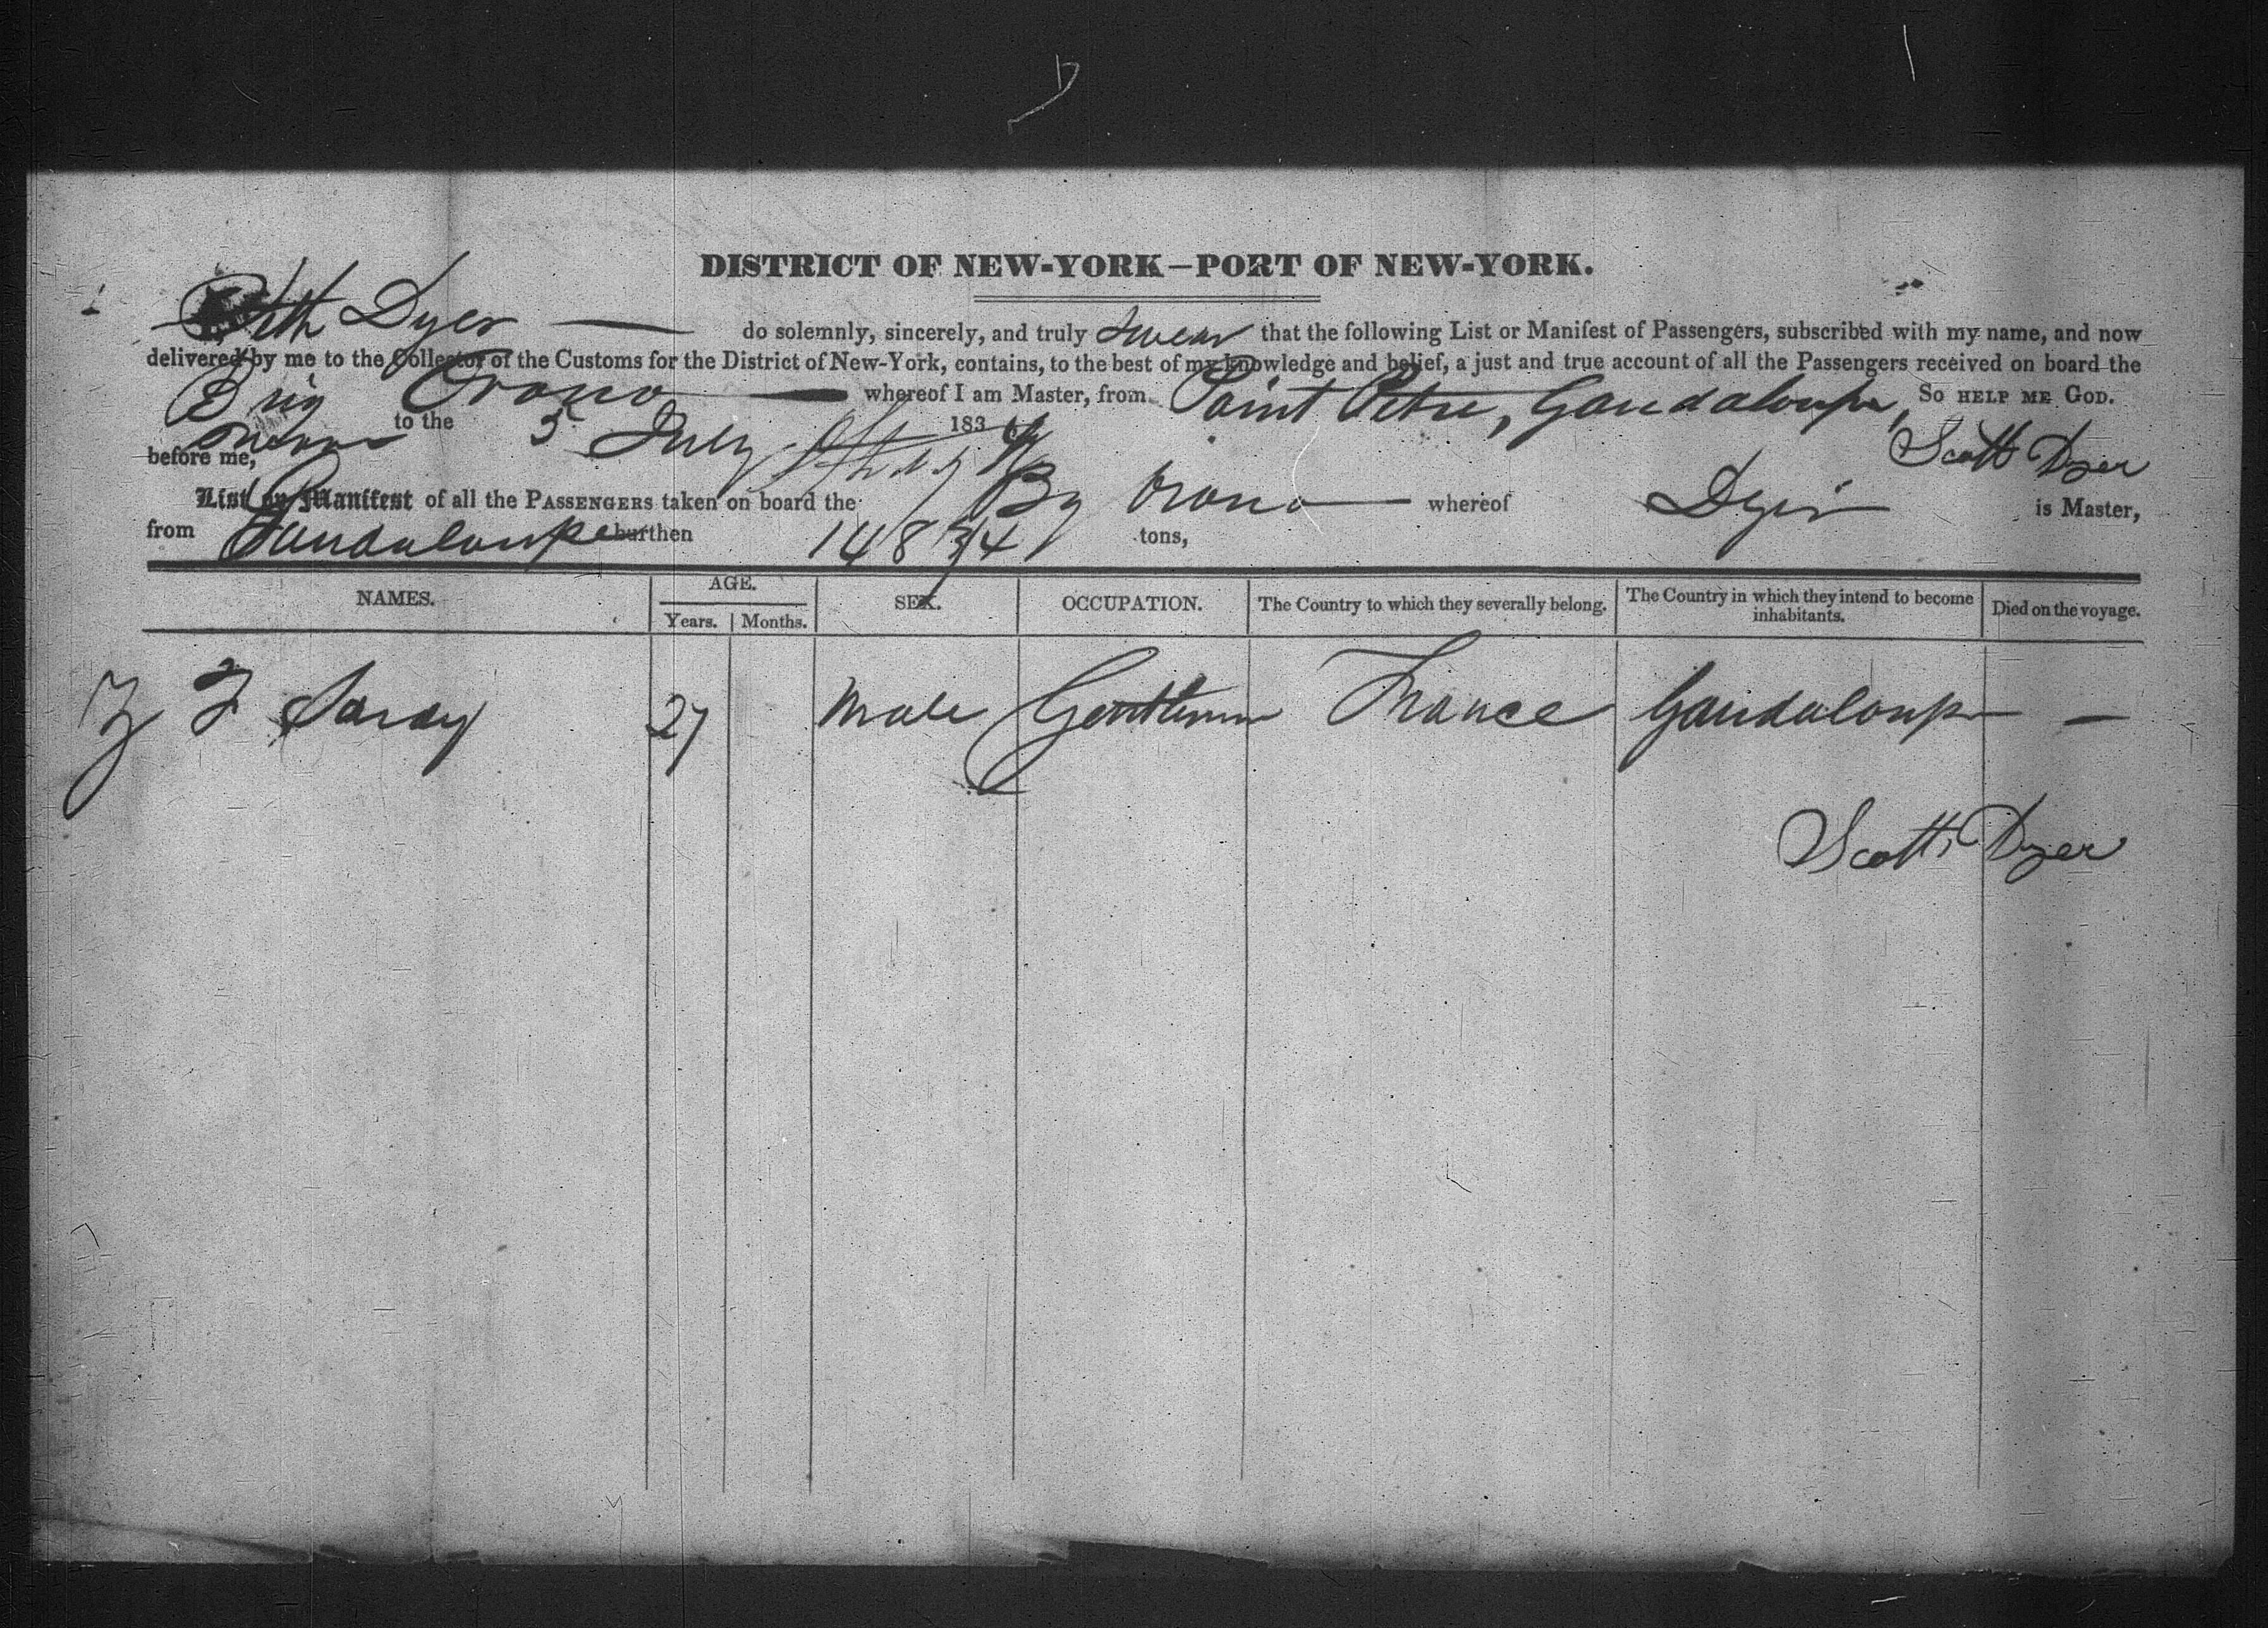 DISTRICT OF NEW-YORK—PORT OF NEW-YORK.
I, Dyer — do solemnly, sincerely, and truly swear that the following List or Manifest of Passengers, subscribed with my name, and now
delivered by me to the Collector of the Customs for the District of New-York, contains, to the best of my knowledge and belief, a just and true account of all the Passengers received on board the
Brig Orono — whereof I am Master, from Point Petre, Gaudaloupe, So HELP ME GOD.
Sworn to the 5 July 183
before me, Scott Dyer
List or Manifest of all the PASSENGERS taken on board the Bg Orono — whereof Dyer is Master,
from Gaudaloupe burthen 148 3/4 tons,
NAMES. AGE. Years. Months. SEX. OCCUPATION. The Country to which they severally belong. The Country in which they intend to become inhabitants. Died on the voyage.
27 Male Gentlemn France Gaudaloup —
Scott Dyer